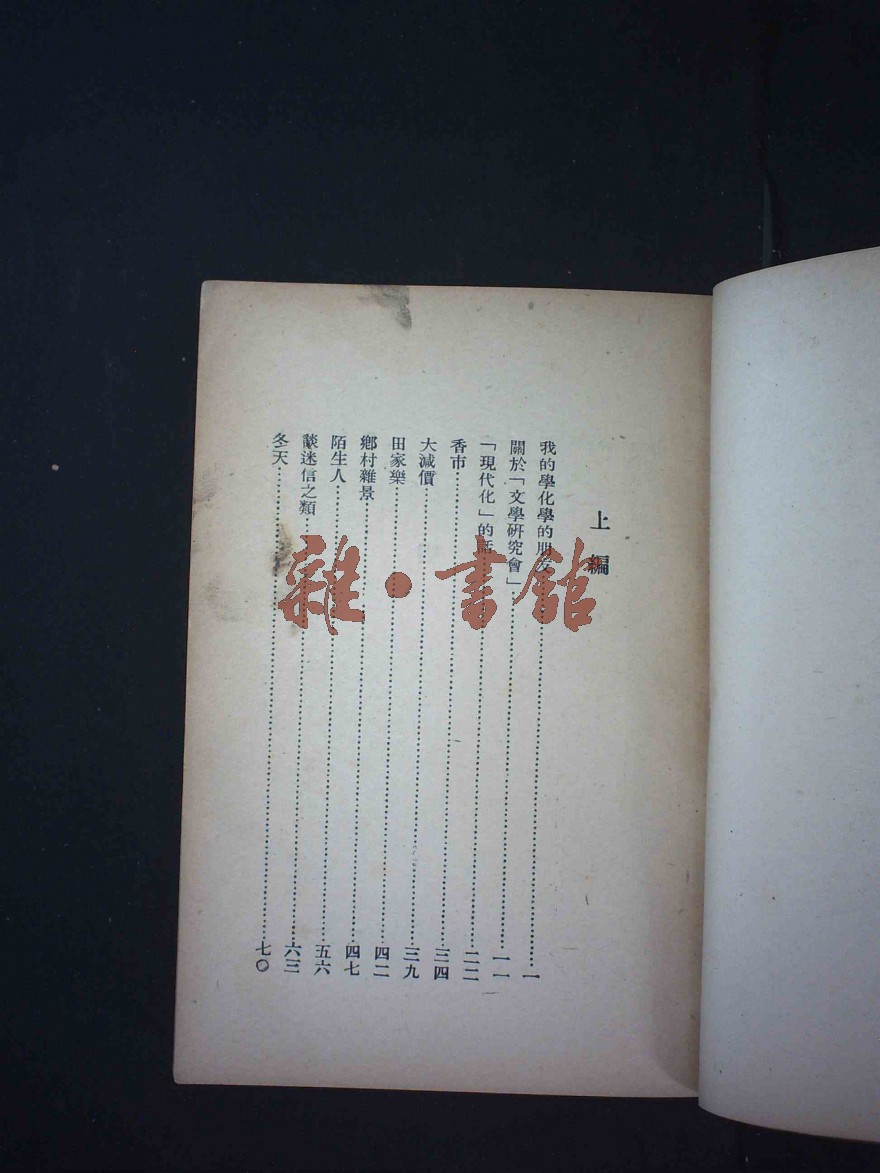 上編
我的學化學的朋友……一
關於「文學研究會」……一一
「現代化」的話……二二
香市……三四
大減價……三九
田家樂……四二
鄉村雜景……四七
陌生人……五六
談迷信之類……六三
冬天……七〇
雜·書館